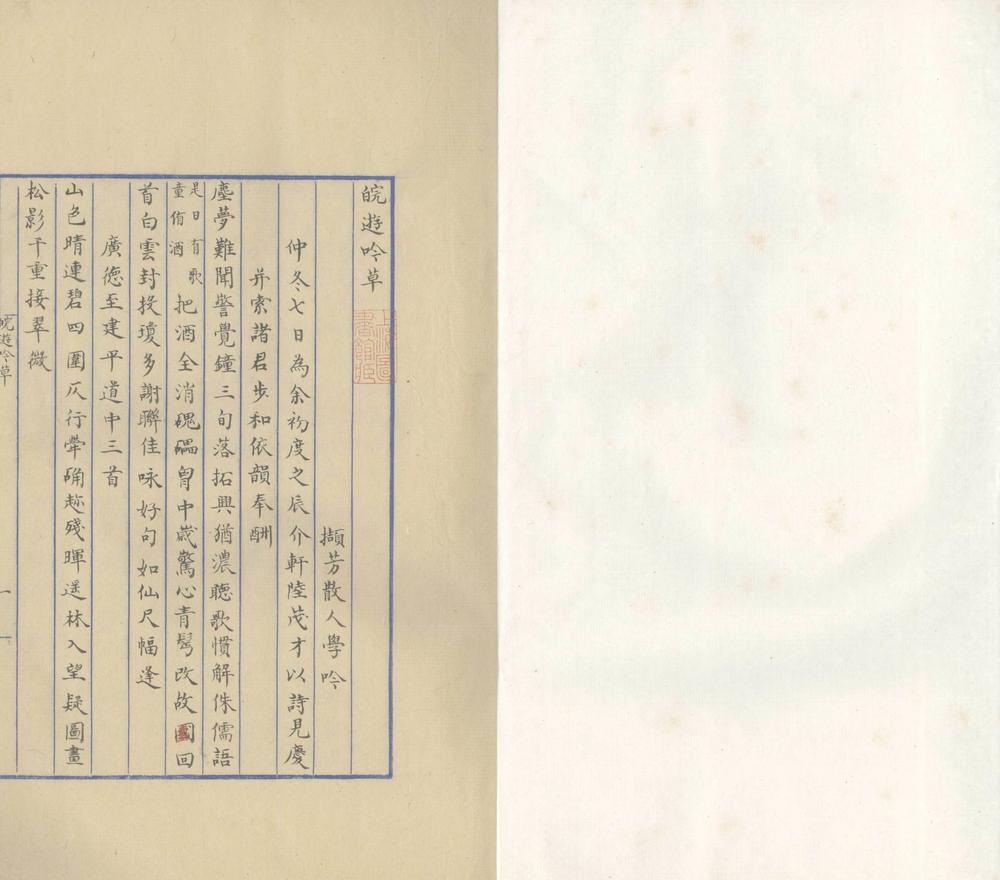 皖遊吟草
上海圖書館藏
擷芳散人學吟
仲冬七日為余初度之辰介軒陸茂才以詩見慶
并索諸君步和依韻奉酬
塵夢難聞警覺鐘三旬落拓興猶濃聽歌慣解侏儒語
是日有歌童侑酒把酒全消磈磊胷中歲驚心青髩改故國回
首白雲封投瓊多謝聯佳咏好句如仙尺幅逢
廣德至建平道中三首
山色晴連碧四圍仄行犖确趂殘暉遥林入望疑圖畫
松影千重接翠微
皖遊吟草
一